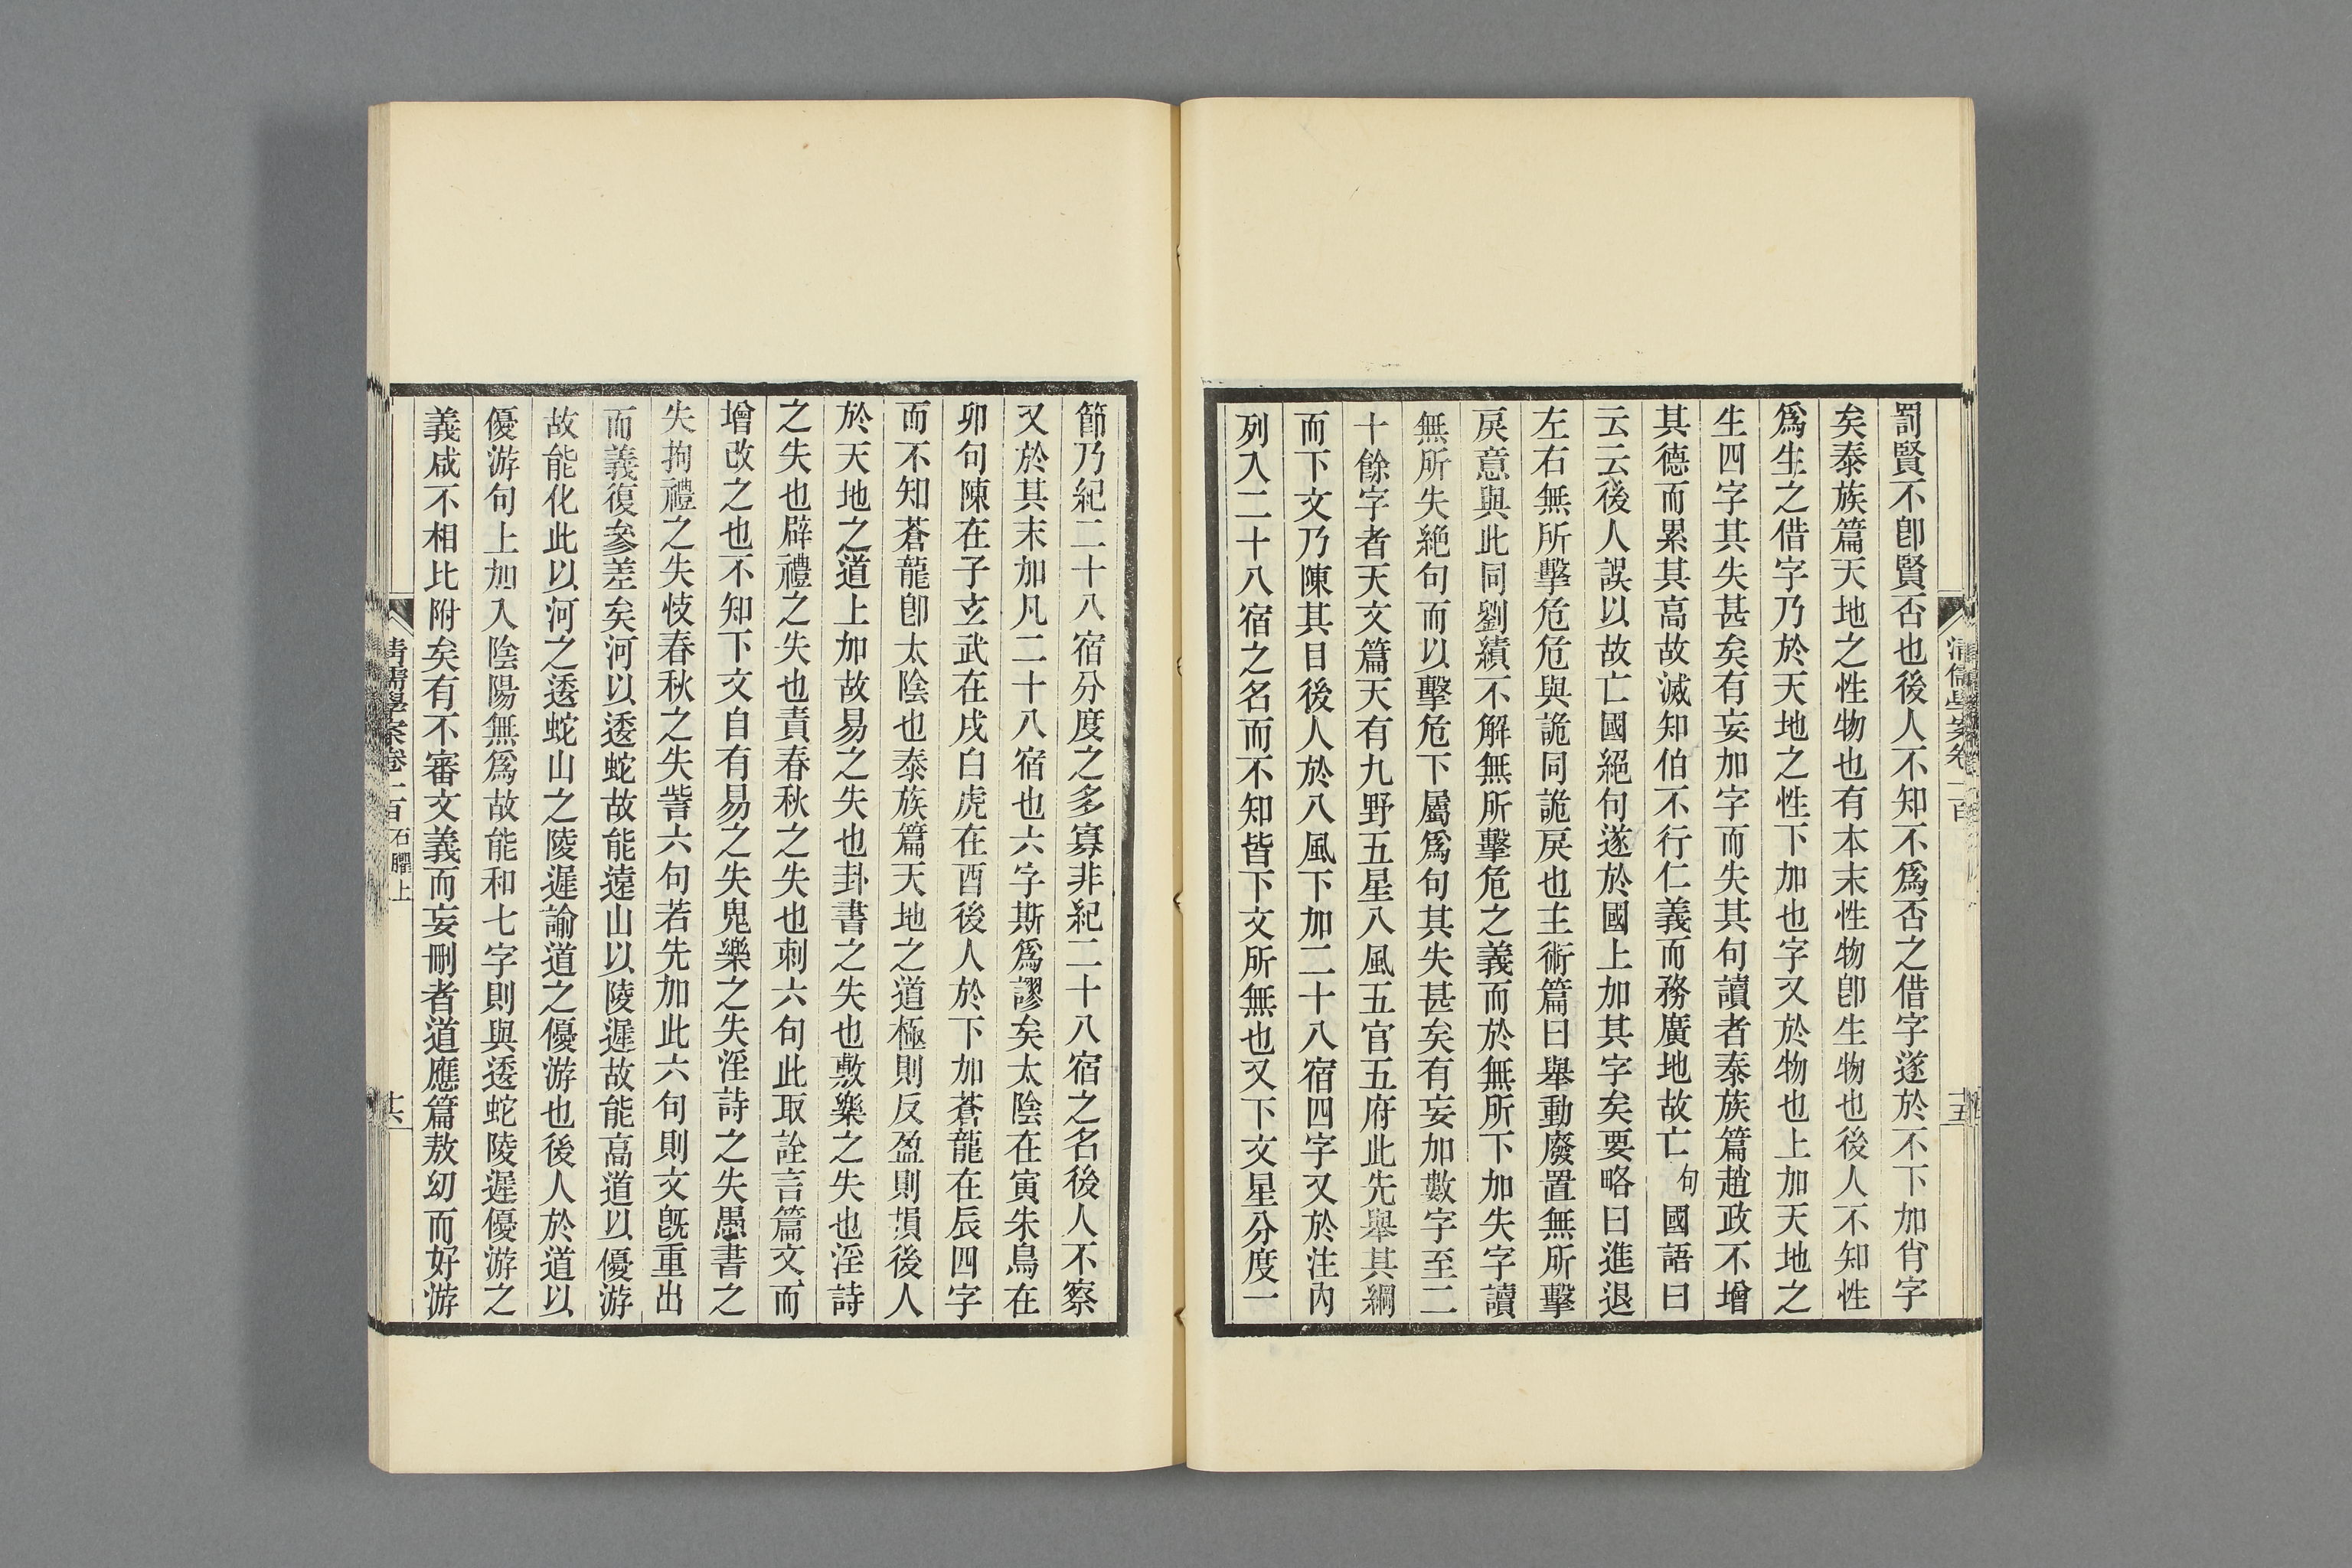 罰賢不卽賢否也後人不知不爲否之借字遂於不下加肖字
矣泰族篇天地之性物也有本末性物卽生物也後人不知性
爲生之借字乃於天地之性下加也字又於物也上加天地之
生四字其失甚矣有妄加字而失其句讀者泰族篇趙政不增
其德而累其高故滅知伯不行仁義而務廣地故亡句國語曰
云云後人誤以故亡國絕句遂於國上加其字矣要略曰進退
左右無所擊危危與詭同詭戾也主術篇曰舉動廢置無所擊
戾意與此同劉績不解無所擊危之義而於無所下加失字讀
無所失絶句而以擊危下屬爲句其失甚矣有妄加數字至二
十餘字者天文篇天有九野五星八風五官五府此先舉其綱
而下文乃陳其目後人於八風下加二十八宿四字又於注內
列入二十八宿之名而不知皆下文所無也又下文星分度一
節乃紀二十八宿分度之多寡非紀二十八宿之名後人不察
又於其末加凡二十八宿也六字斯爲謬矣太陰在寅朱鳥在
卯句陳在子玄武在戌白虎在酉後人於下加蒼龍在辰四字
而不知蒼龍卽太陰也泰族篇天地之道極則反盈則損後人
於天地之道上加故易之失也卦書之失也敷樂之失也淫詩
之失也辟禮之失也責春秋之失也刺六句此取詮言篇文而
增改之也不知下文自有易之失鬼樂之失淫詩之失愚書之
失拘禮之失忮春秋之失訾六句若先加此六句則文旣重出
而義復參差矣河以逶蛇故能遠山以陵遲故能高道以優游
故能化此以河之逶蛇山之陵遲諭道之優游也後人於道以
優游句上加入陰陽無爲故能和七字則與逶蛇陵遲優游之
義咸不相比附矣有不審文義而妄刪者道應篇敖幼而好游
清儒學案卷一百
十五
清儒學案卷一百 石臞上
十六